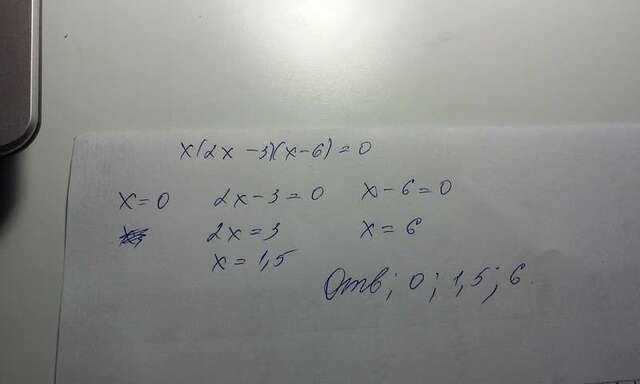 x(2x-3)(x-6)=0
x=0 2x-3=0 x-6=0
2x=3 x=6
x=1,5
Отв; 0; 1,5; 6.